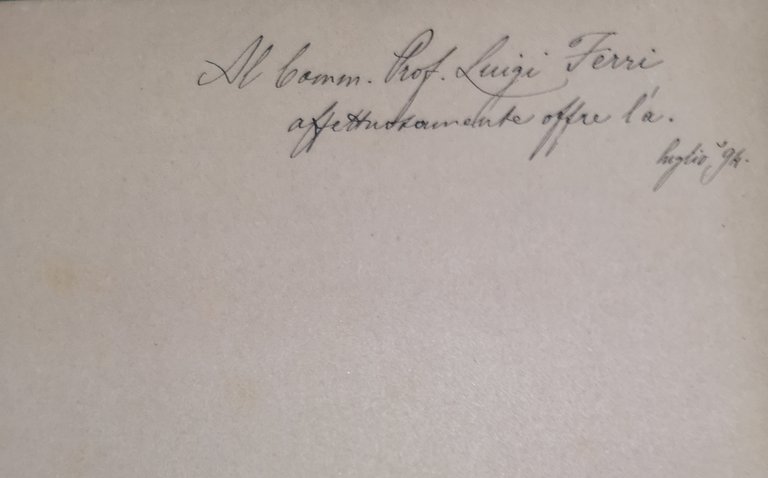 Al Comm. Prof. Luigi Ferri
affettuosamente offre l'a.
luglio, 94.